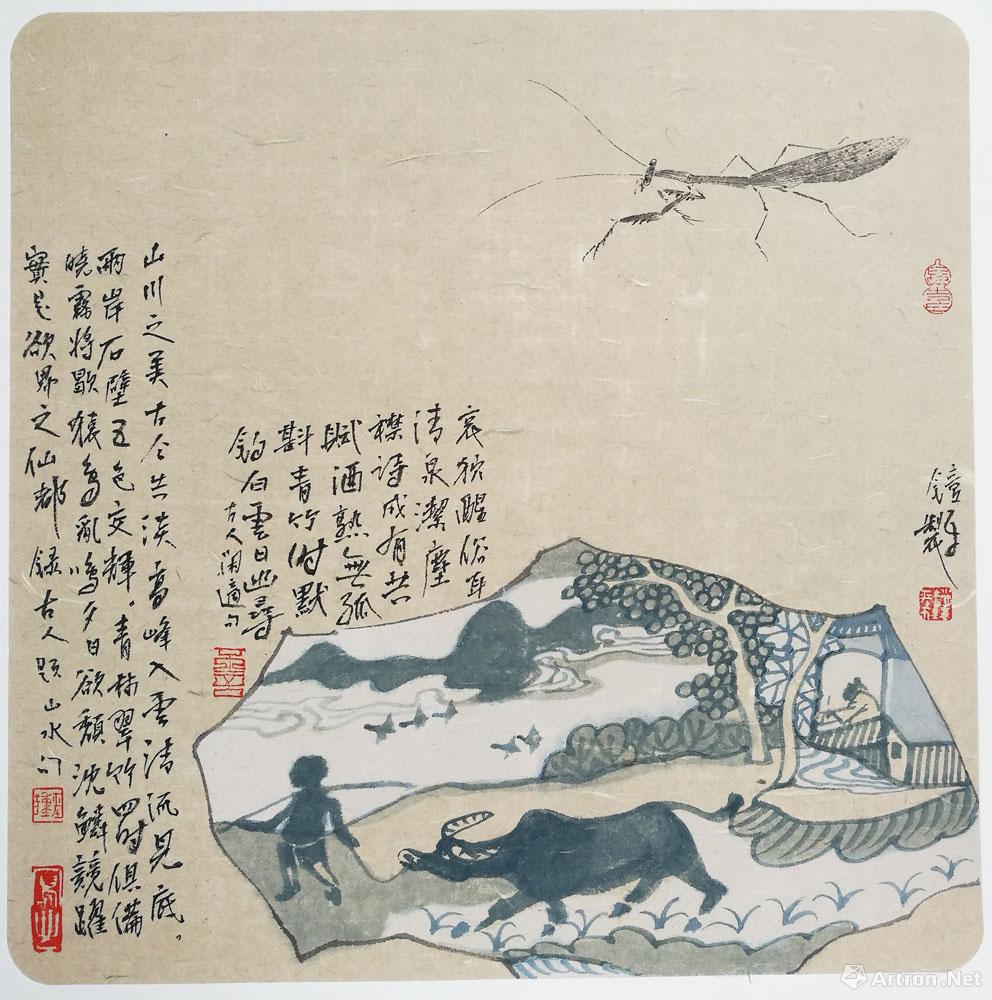 製
哀狖醒俗耳
清泉潔塵
襟诗成有共
賦酒熟無孤
斟青竹时默
釣白雲日幽尋
古人閒適句
山川之美古今共谈高峰入雲清流見底。
兩岸石壁五色交輝。青林翠竹四时俱備
曉霧將歇猿鳥亂鳴夕日欲頹沈鱗競躍
實是欲界之仙都録古人题山水句
Artron.Net